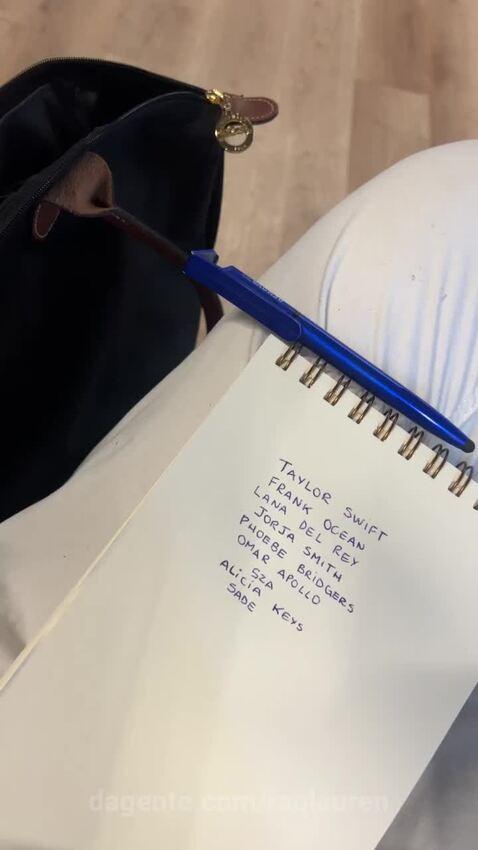 TAYLOR SWIFT
FRANK OCEAN
LANA DEL REY
JORJA SMITH
PHOEBE BRIDGERS
OMAR APOLLO
SZA
ALiCiA KEYS
SADE
dagente.com/raplauren